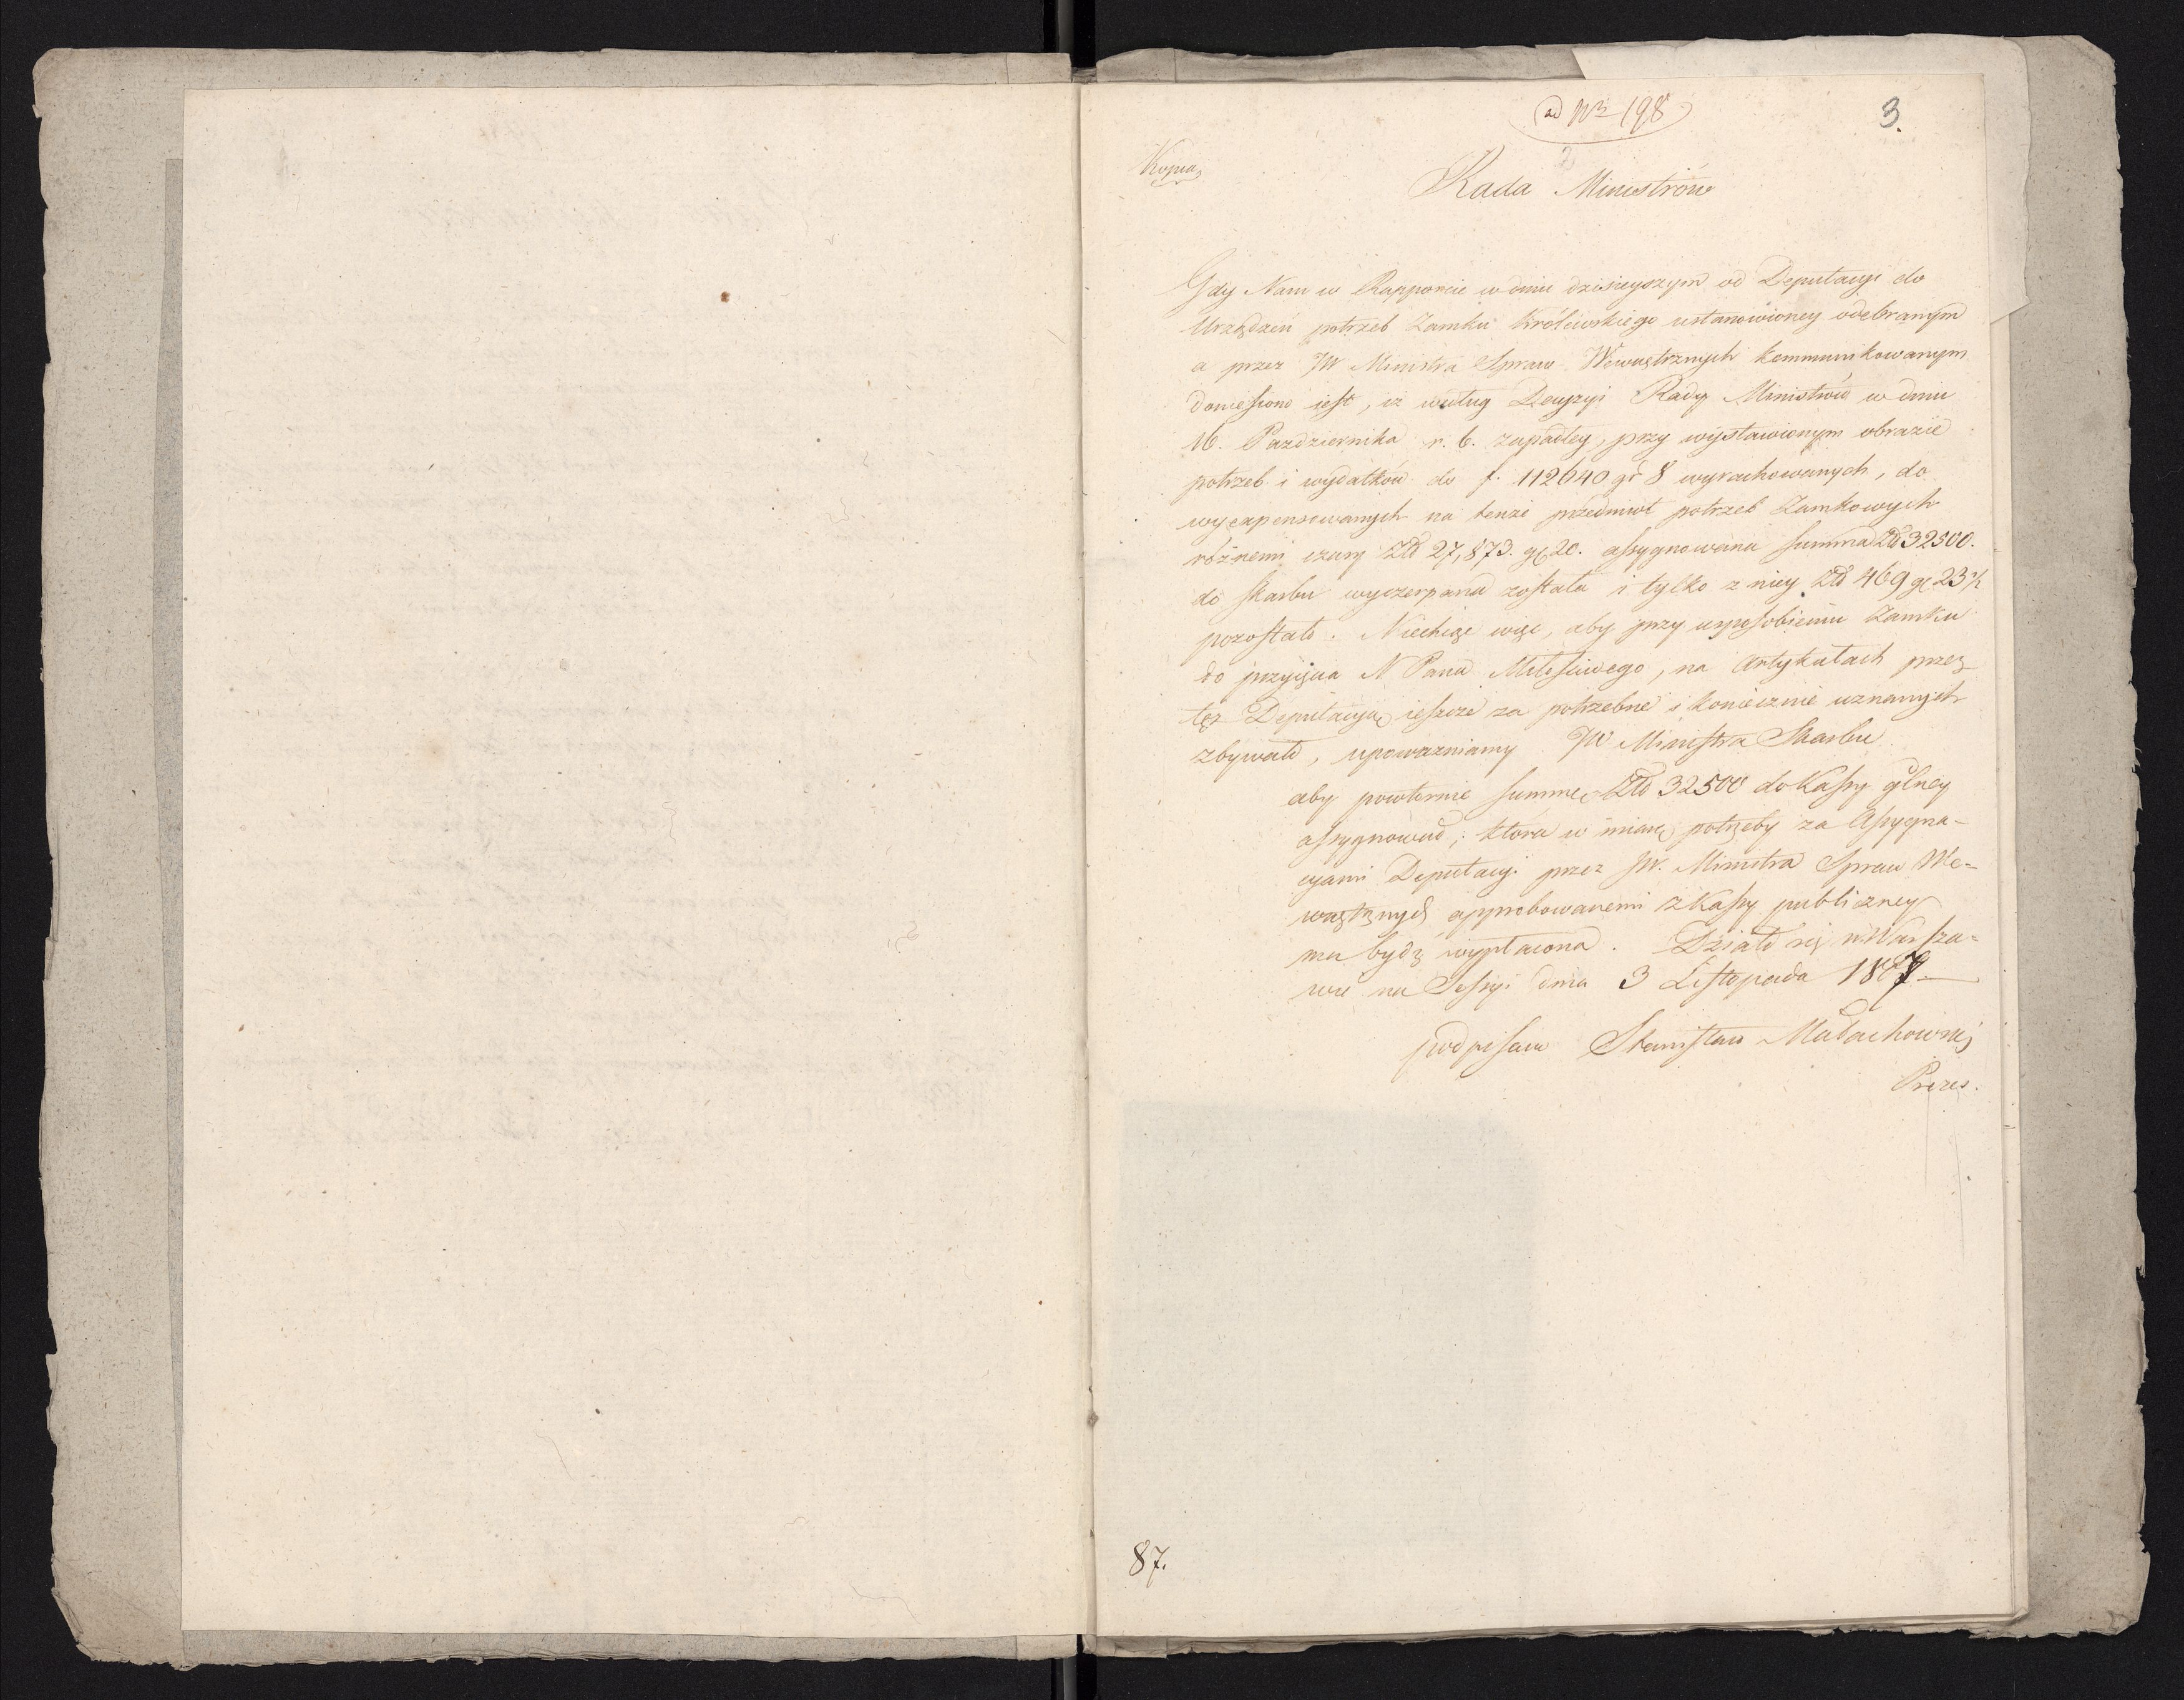 ad Nr 198
3.
Kopia
Rada Ministrów
Gdy Nam w Rapporcie w dniu dzisieyszym od Deputacyi do
Urządzeń potrzeb Zamku Królewskiego ustanowioney odebranym
a przez JW Ministra Spraw Wewnętrznych kommunikowanym
doniesiono iest, iż według Decyzyi Rady Ministrów w dniu
16. Pazdziernika r. b. zapadłey, przy wystawionym obrazie
potrzeb i wydatków do f. 112640 gr 8 wyrachowanych, do
wyexpensowanych na tenże przedmiot potrzeb Zamkowych
różnemi czasy Złł 27,873. gr 20. assygnowana summa Złł 32500.
do skarbu wyczerpana została i tylko z niey Złł 469 gr 23½
pozostało. Niechcąc więc, aby przy usposobieniu Zamku
do przyięcia N Pana Miłościwego, na Artykułach przez
tęż Deputacyą ieszcze za potrzebne i koniecznie uznanych
zbywało, upoważniamy JW Ministra Skarbu
aby powtórnie summę Złł 32500 do Kassy głney
assygnował; która w miarę potrzeby za Assygna-
cyami Deputacyi przez JW. Ministra Spraw We-
wnętrznych approbowanemi z Kassy publiczney
ma bydź wypłacona. Działo się w Warsza-
wie na Sessyi dnia 3 Listopada 1807
podpisano Stanisław Małachowski
Prezes.
87.